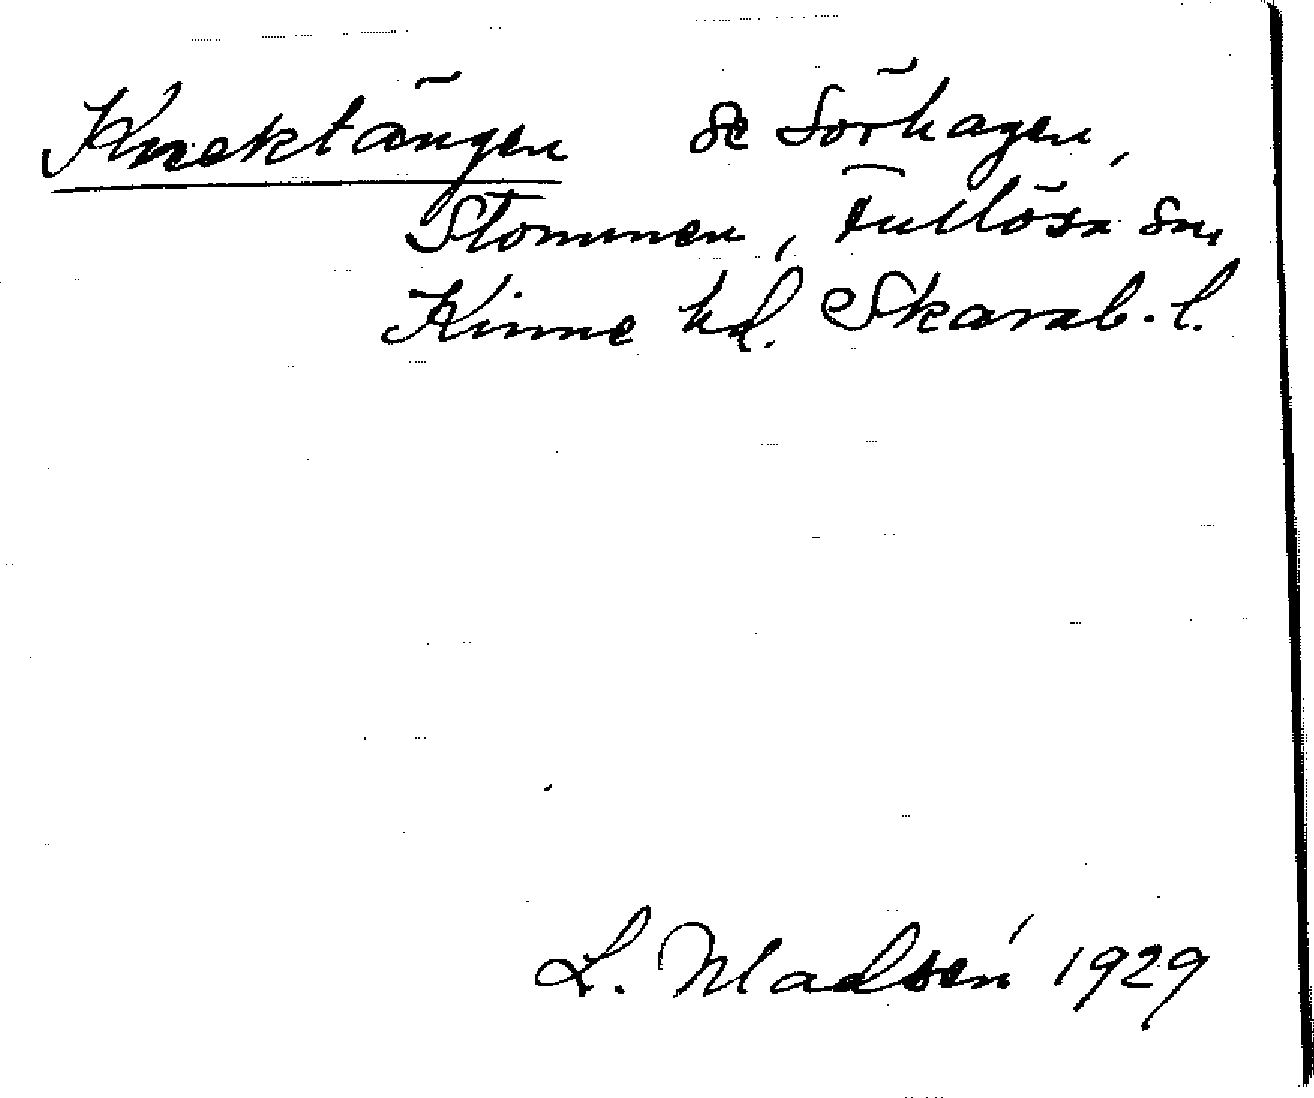 Knektängen se Sörhagen,
Stommen, Fullösa sn,
Kinne hd. Skarab. l.
L. Madsén 1929